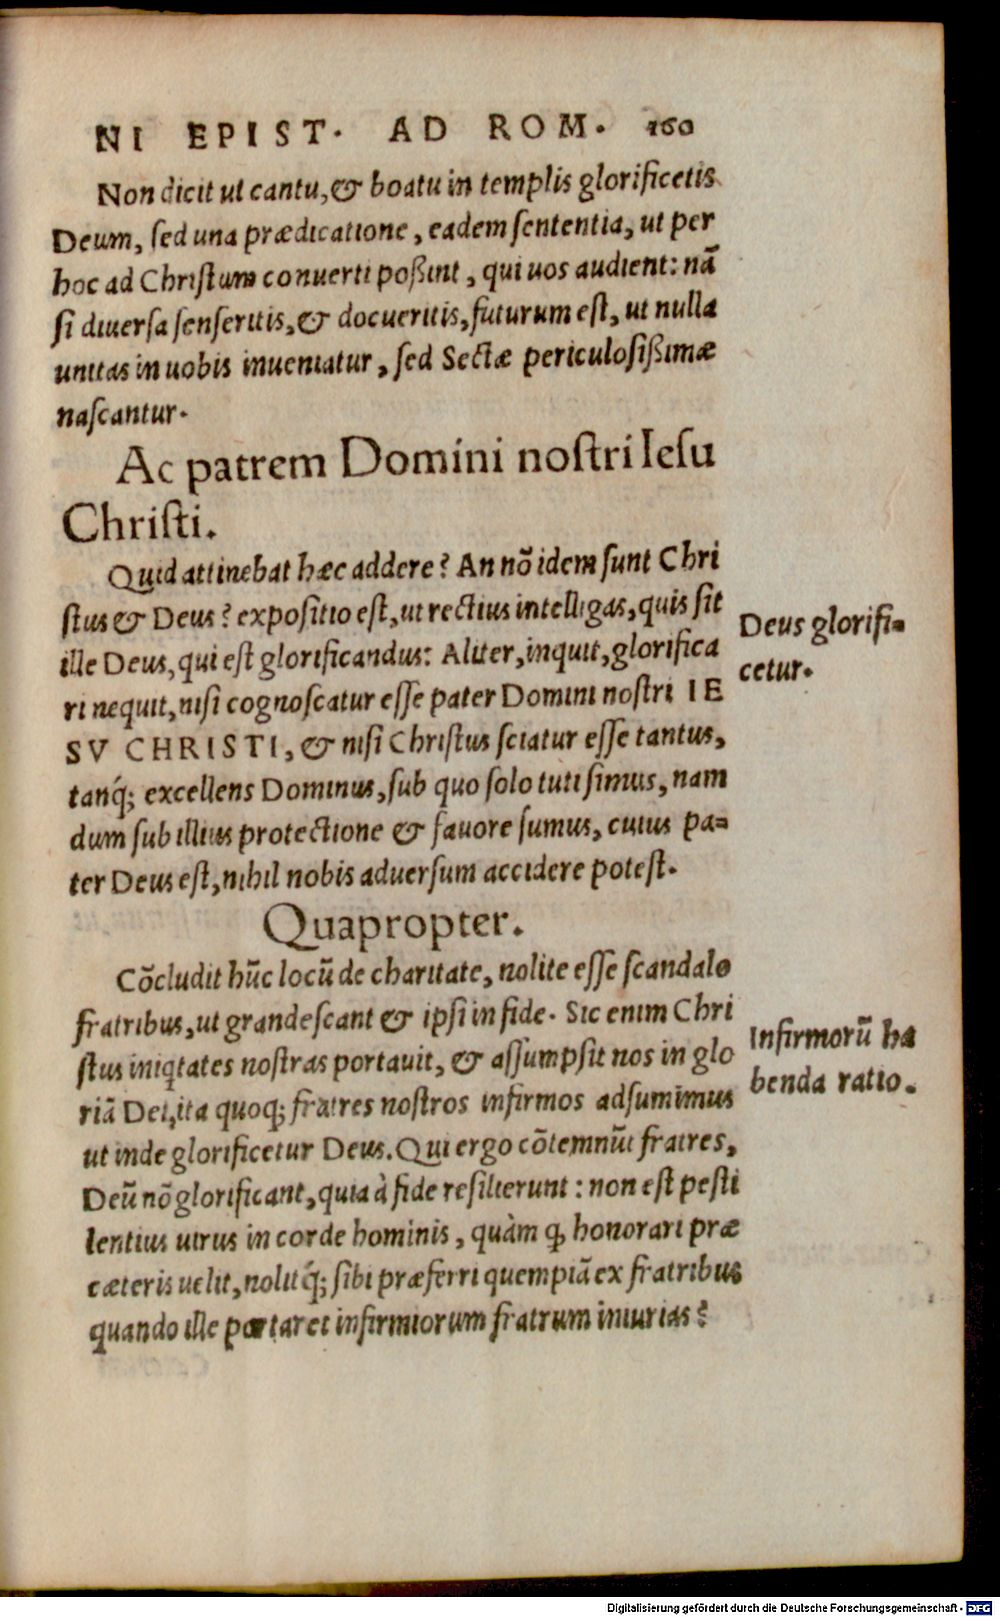 NI EPIST. AD ROM. 160
Non dicit ut cantu, & boatu in templis glorificetis
Deum, ſed una prædicatione, eadem ſententia, ut per
hoc ad Chriſtum conuerti poßint, qui uos audient: nā
ſi diuerſa ſenſeritis, & docueritis, futurum eſt, ut nulla
unitas in uobis inueniatur, ſed Sectæ periculoſißimæ
naſcantur.
Ac patrem Domini noſtri Ieſu
Chriſti.
Quid attinebat hæc addere? An nō idem ſunt Chri
ſtus & Deus? expoſitio eſt, ut rectius intelligas, quis ſit
ille Deus, qui eſt glorificandus: Aliter, inquit, glorifica
ri nequit, niſi cognoſcatur eſſe pater Domini noſtri IE
SV CHRISTI, & niſi Chriſtus ſciatur eſſe tantus,
tanq́; excellens Dominus, ſub quo ſolo tuti ſimus, nam
dum ſub illius protectione & fauore ſumus, cuius pa=
ter Deus eſt, nihil nobis aduerſum accidere poteſt.
Deus glorifi=
cetur.
Quapropter.
Cōcludit hūc locū de charitate, nolite eſſe ſcandalo
fratribus, ut grandeſcant & ipſi in fide. Sic enim Chri
ſtus iniq̃tates noſtras portauit, & aſſumpſit nos in glo
riā Dei, ita quoq; fratres noſtros infirmos adſumimus
ut inde glorificetur Deus. Qui ergo cōtemnūt fratres,
Deū nō glorificant, quia à fide reſilierunt: non eſt peſti
lentius uirus in corde hominis, quàm ꝙ honorari præ
cæteris uelit, nolitq́; ſibi præferri quempiā ex fratribus
quando ille portaret infirmiorum fratrum iniurias?
Infirmorū ha
benda ratio.
Digitalisierung gefördert durch die Deutsche Forschungsgemeinschaft - DFG